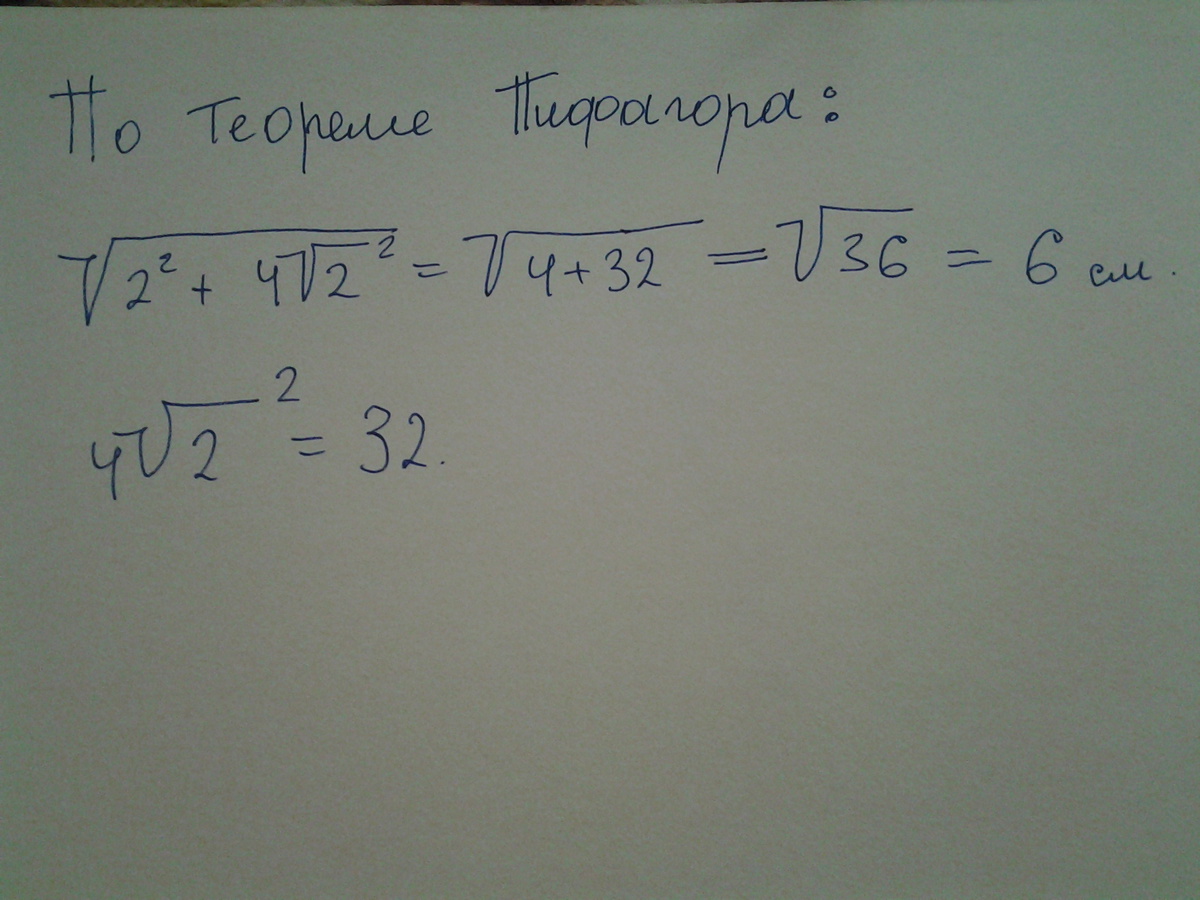 По теореме Пифагора:
√(2² + 4√2²) = √(4+32) = √36 = 6 см.
4√2² = 32.